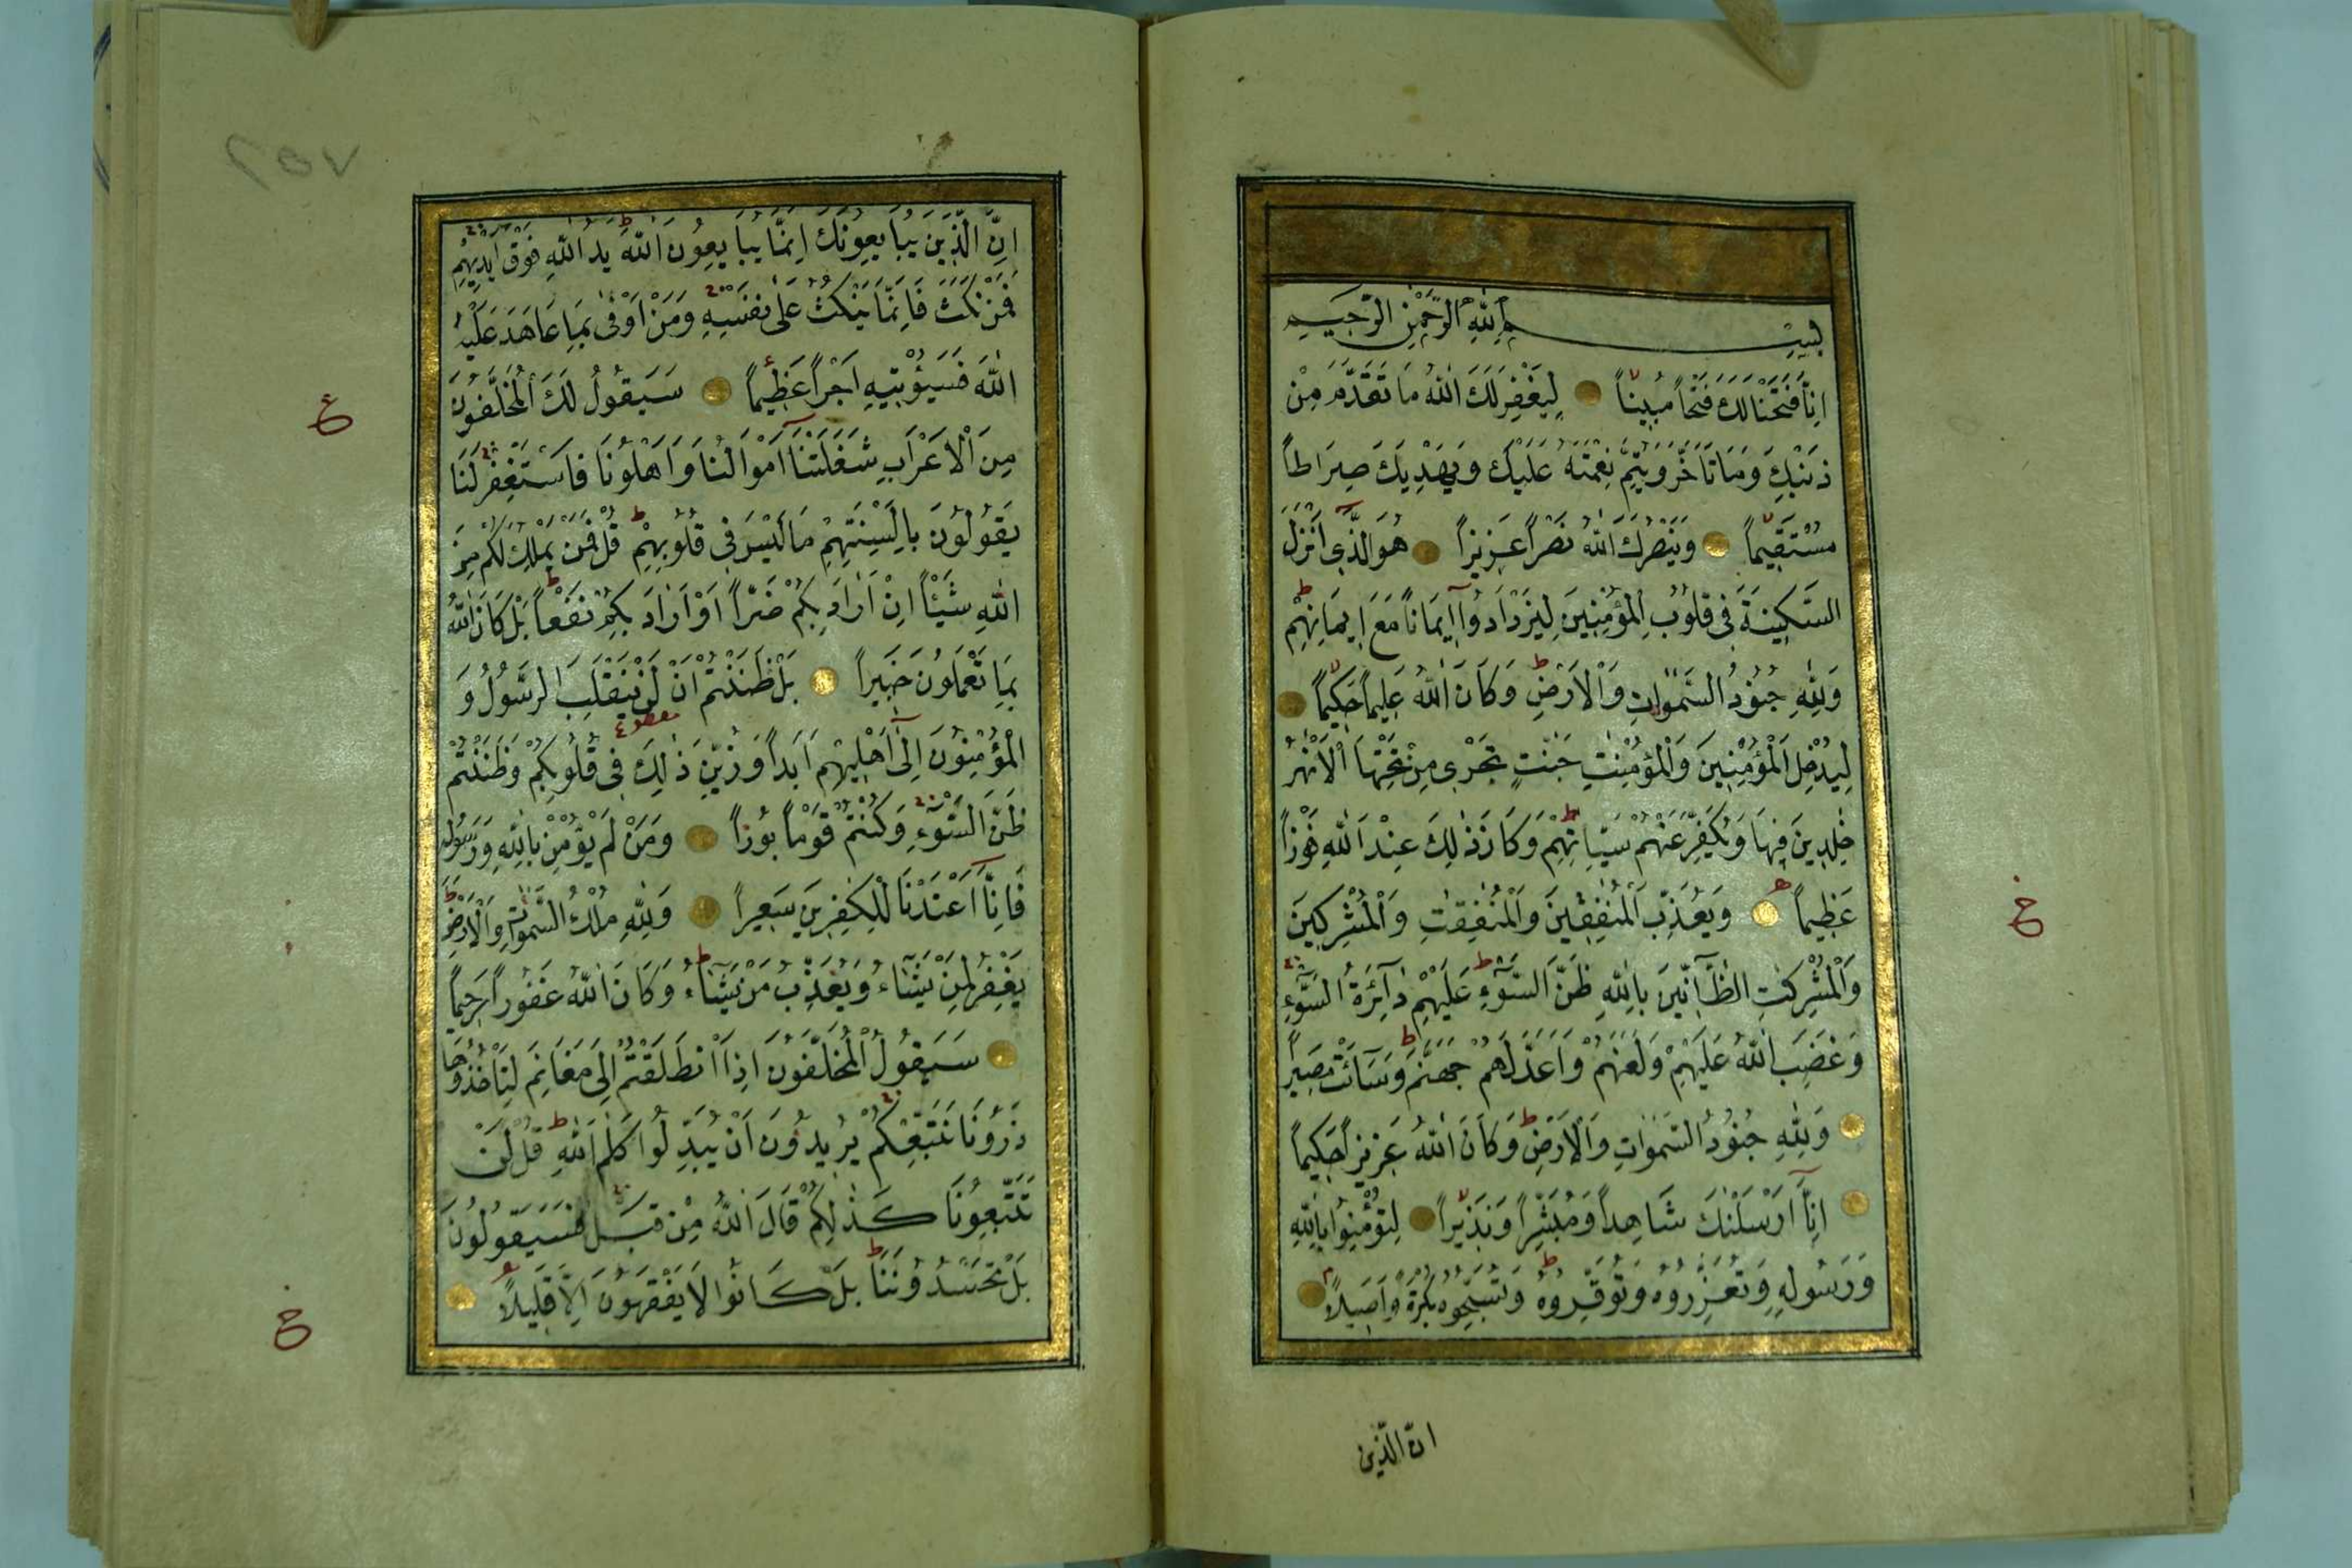 بِسْمِ اللّٰهِ الرَّحْمٰنِ الرَّحِيمِ
اِنَّا فَتَحْنَا لَكَ فَتْحًا مُبِينًا لِيَغْفِرَ لَكَ اللّٰهُ مَا تَقَدَّمَ مِنْ
ذَنْبِكَ وَمَا تَاَخَّرَ وَيُتِمَّ نِعْمَتَهُ عَلَيْكَ وَيَهْدِيَكَ صِرَاطًا
مُسْتَقِيمًا وَيَنْصُرَكَ اللّٰهُ نَصْرًا عَزِيزًا هُوَ الَّذِى اَنْزَلَ
السَّكِينَةَ فِى قُلُوبِ الْمُؤْمِنِينَ لِيَزْدَادُوا اِيمَانًا مَعَ اِيمَانِهِمْ
وَلِلّٰهِ جُنُودُ السَّمٰوَاتِ وَالْاَرْضِ وَكَانَ اللّٰهُ عَلِيمًا حَكِيمًا
لِيُدْخِلَ الْمُؤْمِنِينَ وَالْمُؤْمِنٰتِ جَنّٰتٍ تَجْرِى مِنْ تَحْتِهَا الْاَنْهٰرُ
خٰلِدِينَ فِيهَا وَيُكَفِّرَ عَنْهُمْ سَيِّاٰتِهِمْ وَكَانَ ذٰلِكَ عِنْدَ اللّٰهِ فَوْزًا
عَظِيمًا وَيُعَذِّبَ الْمُنٰفِقِينَ وَالْمُنٰفِقٰتِ وَالْمُشْرِكِينَ
وَالْمُشْرِكٰتِ الظَّآنِّينَ بِاللّٰهِ ظَنَّ السَّوْءِ عَلَيْهِمْ دَآئِرَةُ السَّوْءِ
وَغَضِبَ اللّٰهُ عَلَيْهِمْ وَلَعَنَهُمْ وَاَعَدَّ لَهُمْ جَهَنَّمَ وَسَآئَتْ مَصِيرًا
وَلِلّٰهِ جُنُودُ السَّمٰوَاتِ وَالْاَرْضِ وَكَانَ اللّٰهُ عَزِيزًا حَكِيمًا
اِنَّا اَرْسَلْنٰكَ شَاهِدًا وَمُبَشِّرًا وَنَذِيرًا لِتُؤْمِنُوا بِاللّٰهِ
وَرَسُولِهِ وَتُعَزِّرُوهُ وَتُوَقِّرُوهُ وَتُسَبِّحُوهُ بُكْرَةً وَاَصِيلًا
ان الّذين
٢٥٧
اِنَّ الَّذِينَ يُبَايِعُونَكَ اِنَّمَا يُبَايِعُونَ اللّٰهَ يَدُ اللّٰهِ فَوْقَ اَيْدِيهِمْ
فَمَنْ نَكَثَ فَاِنَّمَا يَنْكُثُ عَلٰى نَفْسِهِ وَمَنْ اَوْفٰى بِمَا عَاهَدَ عَلَيْهُ
اللّٰهَ فَسَيُؤْتِيهِ اَجْرًا عَظِيمًا سَيَقُولُ لَكَ الْمُخَلَّفُونَ
مِنَ الْاَعْرَابِ شَغَلَتْنَا اَمْوَالُنَا وَاَهْلُونَا فَاسْتَغْفِرْ لَنَا
يَقُولُونَ بِاَلْسِنَتِهِمْ مَا لَيْسَ فِى قُلُوبِهِمْ قُلْ فَمَنْ يَمْلِكُ لَكُمْ مِنَ
اللّٰهِ شَيْئًا اِنْ اَرَادَ بِكُمْ ضَرًّا اَوْ اَرَادَ بِكُمْ نَفْعًا بَلْ كَانَ اللّٰهُ
بِمَا تَعْمَلُونَ خَبِيرًا بَلْ ظَنَنْتُمْ اَنْ لَنْ يَنْقَلِبَ الرَّسُولُ وَ
الْمُؤْمِنُونَ اِلٰى اَهْلِيهِمْ اَبَدًا وَزُيِّنَ ذٰلِكَ فِى قُلُوبِكُمْ وَظَنَنْتُمْ
ظَنَّ السَّوْءِ وَكُنْتُمْ قَوْمًا بُورًا وَمَنْ لَمْ يُؤْمِنْ بِاللّٰهِ وَرَسُولِهِ
فَاِنَّا اَعْتَدْنَا لِلْكٰفِرِينَ سَعِيرًا وَلِلّٰهِ مُلْكُ السَّمٰوَاتِ وَالْاَرْضِ
يَغْفِرُ لِمَنْ يَشَآءُ وَيُعَذِّبُ مَنْ يَشَآءُ وَكَانَ اللّٰهُ غَفُورًا رَحِيمًا
سَيَقُولُ الْمُخَلَّفُونَ اِذَا انْطَلَقْتُمْ اِلٰى مَغَانِمَ لِتَاْخُذُوهَا
ذَرُونَا نَتَّبِعْكُمْ يُرِيدُونَ اَنْ يُبَدِّلُوا كَلٰمَ اللّٰهِ قُلْ لَنْ
تَتَّبِعُونَا كَذٰلِكُمْ قَالَ اللّٰهُ مِنْ قَبْلُ فَسَيَقُولُونَ
بَلْ تَحْسُدُونَنَا بَلْ كَانُوا لَا يَفْقَهُونَ اِلَّا قَلِيلًا